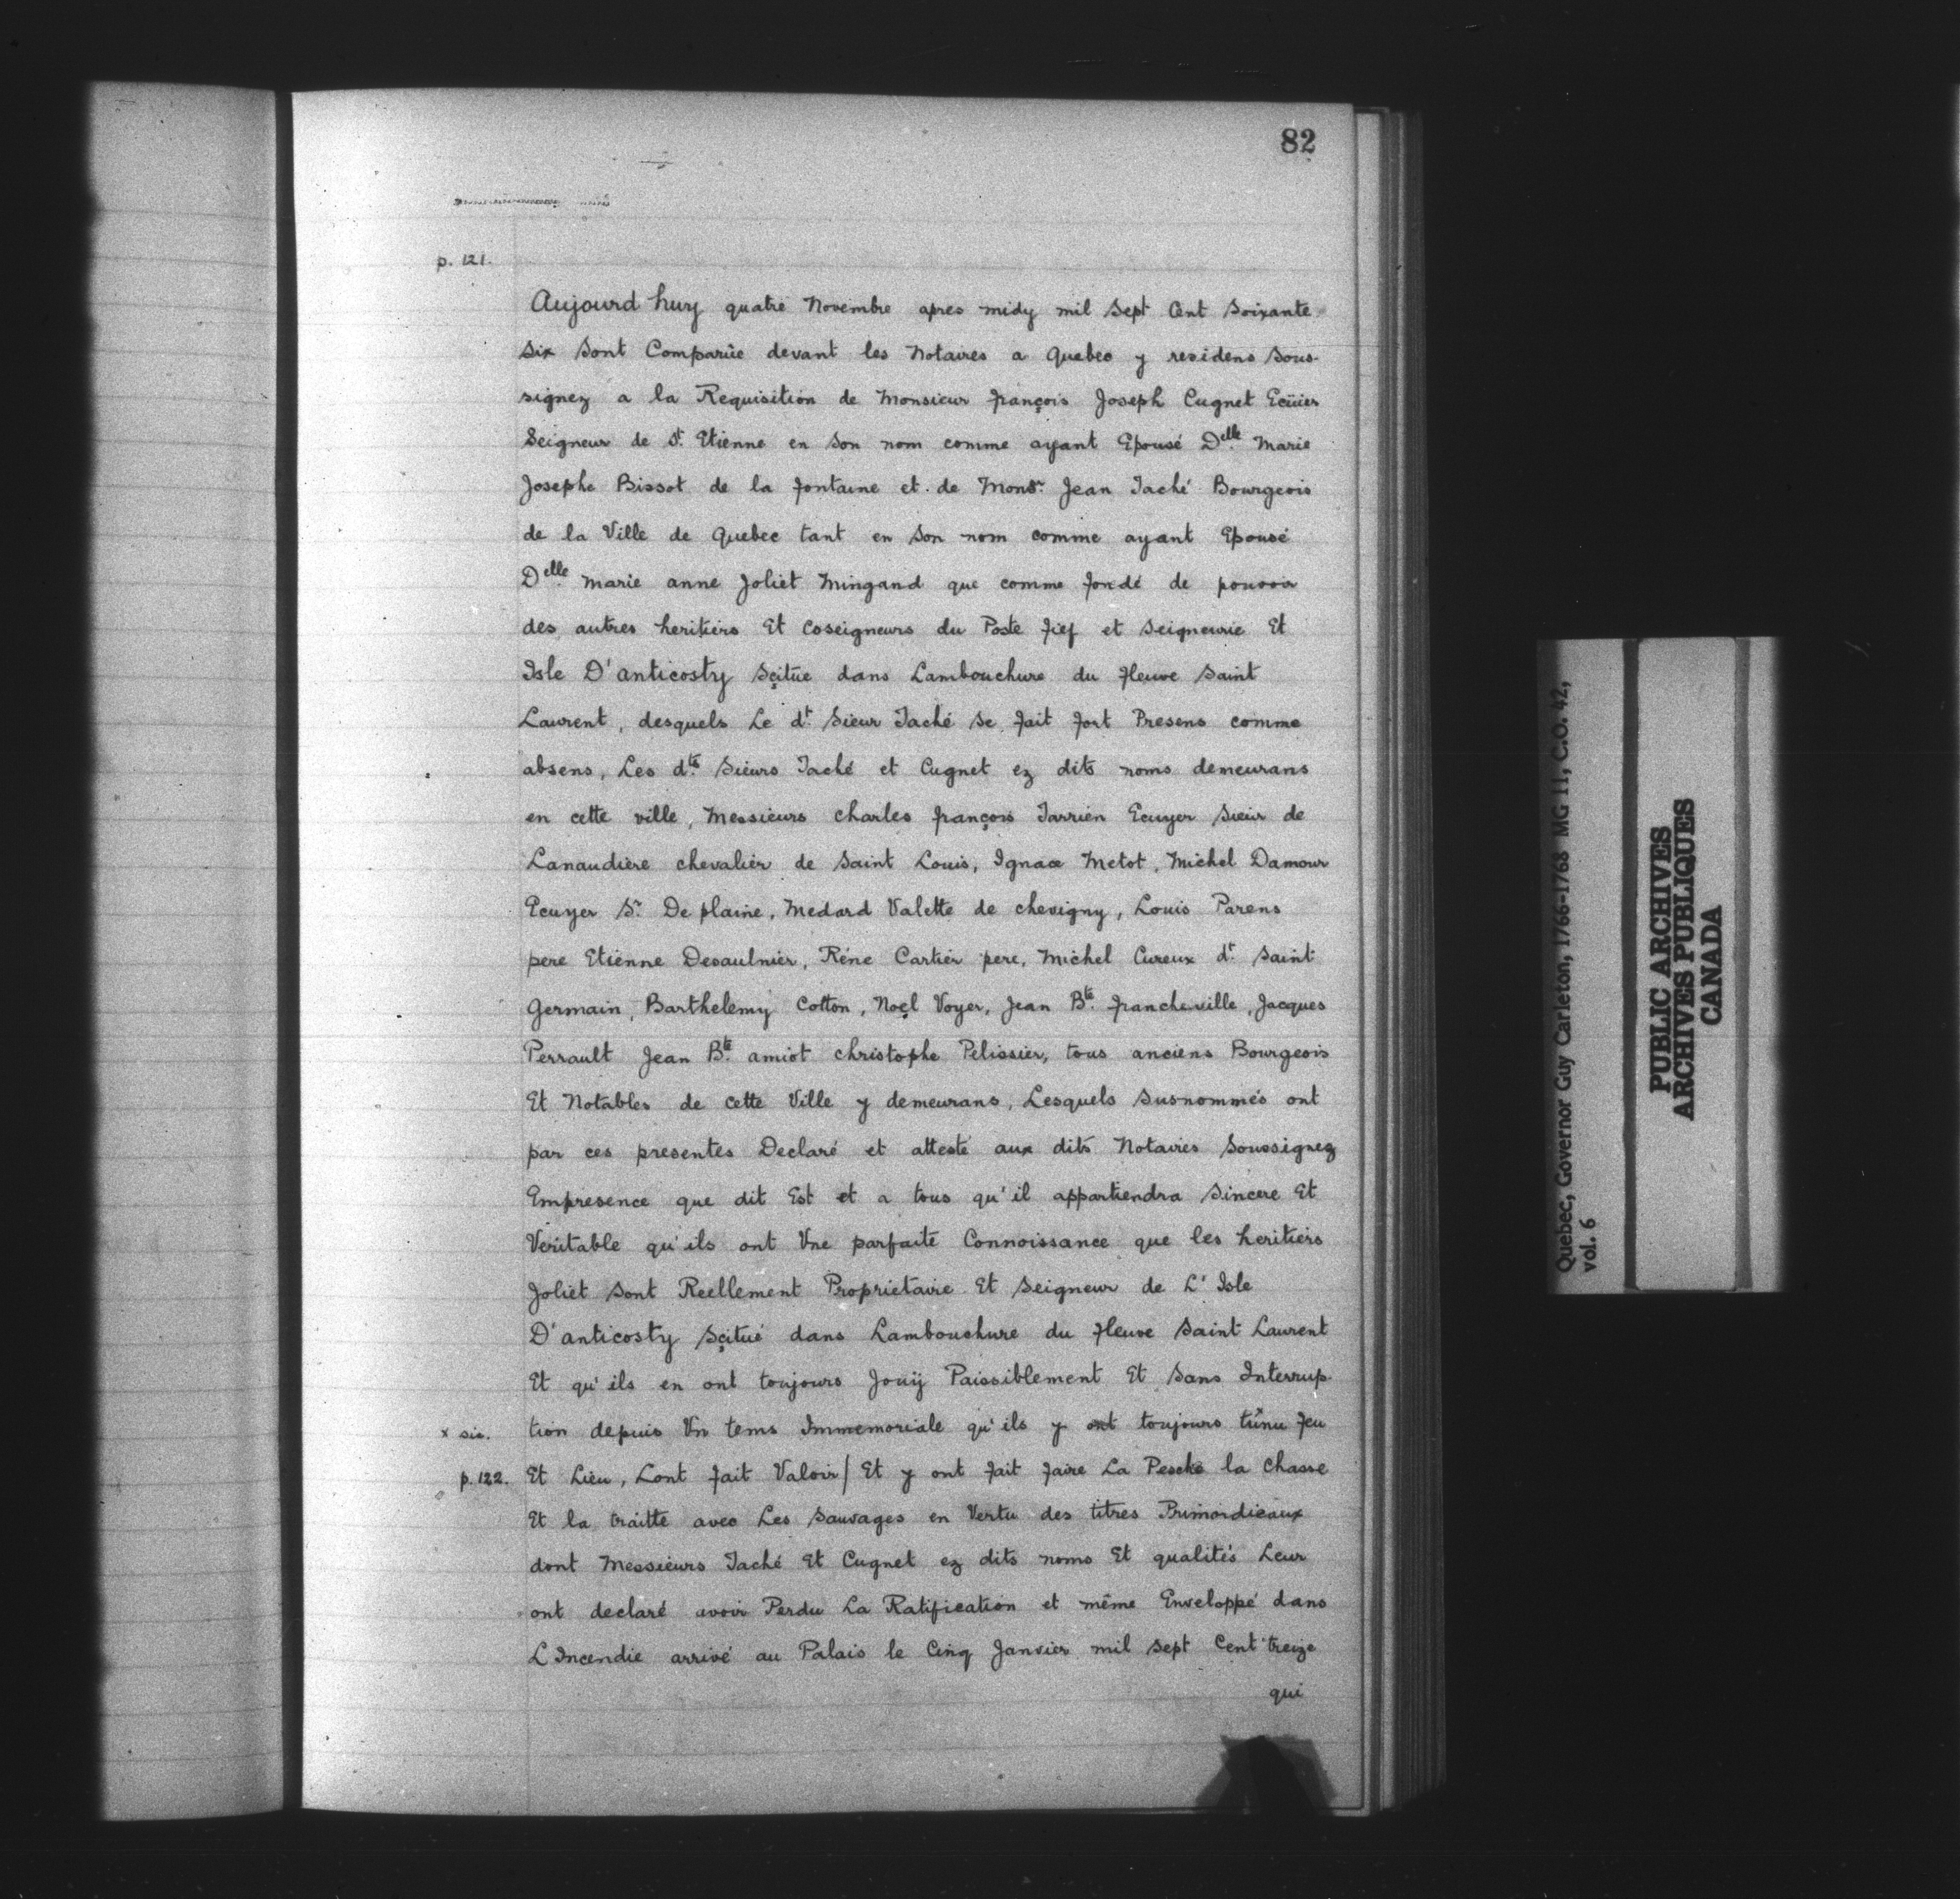 82
p. 121.
Aujourd huy quatre Novembre apres midy mil Sept Cent Soixante
Six Sont Comparûe devant les Notaires a Quebec y residens Sous-
signez a la Requisition de Monsieur françois Joseph Cugnet Ecüier
Seigneur de St. Etienne en Son nom comme ayant Epousé Delle Marie
Josephe Bissot de la fontaine et de Monsr. Jean Taché Bourgeois
de la Ville de Quebec tant en Son nom comme ayant Epousé
Delle marie anne Joliet Mingand que comme fondé de pouvoir
des autres heritiers Et Coseigneurs du Poste fief et Seigneurie Et
Isle D'anticosty Sçitüe dans Lambouchure du fleuve Saint
Laurent, desquels Le dt. Sieur Taché Se fait fort Presens comme
absens, Les dts. Sieurs Taché et Cugnet ez dits noms demeurans
en cette ville, Messieurs Charles françois Tarrien Ecuyer Sieur de
Lanaudiere chevalier de Saint Louis, Ignace Metot, Michel Damour
Ecuyer Sr. De plaine, Medard Valette de chevigny, Louis Parens
pere Etienne Desaulnier, Réne Cartier pere, Michel Cureux dt. Saint
Germain, Barthelemy Cotton, Noel Voyer, Jean Bte. francheville, Jacques
Perrault Jean Bte. amiot christophe Pelissier, tous anciens Bourgeois
Et Notables de Cette Ville y demeurans, Lesquels Susnommés ont
par ces presentes Declaré et attesté aux dits Notaires Soussignez
Empresence que dit Est et a tous qu'il appartiendra Sincere Et
Veritable qu'ils ont Vne parfaite Connoissance que les heritiers
Joliet Sont Reellement Proprietaire Et Seigneur de L' Isle
D'anticosty Sçitué dans Lambouchure du fleuve Saint Laurent
Et qu'ils en ont toujours Jouÿ Paissiblement Et Sans Interrup-
x sic. tion depuis Vn tems Immemoriale qu'ils y ont toujours tûnu x feu
p. 122. Et Lieu, Lont fait Valoir/ Et y ont fait faire La Pesche la Chasse
Et la traitte avec Les Sauvages en Vertu des titres Primordieaux
dont Messieurs Taché Et Cugnet ez dits noms Et qualités Leur
ont declaré avoir Perdu La Ratification et même Enveloppé dans
L'Incendie arrivé au Palais le Cinq Janvier mil Sept Cent treize
qui
Quebec, Governor Guy Carleton, 1766-1768 MG 11, C.O. 42,
vol. 6
PUBLIC ARCHIVES
ARCHIVES PUBLIQUES
CANADA